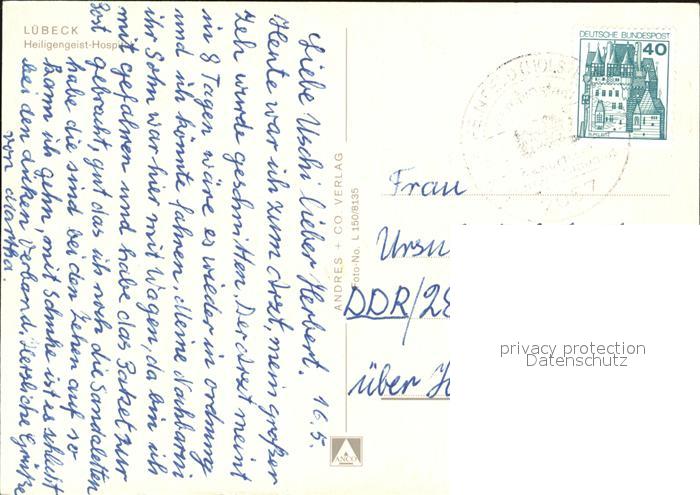 LÜBECK
Heiligengeist-Hospital
Liebe Uschi lieber Herbert. 16.5.
Heute war ich zum Arzt, mein großer
Zeh wurde geschnitten, Der Arzt meint
in 8 Tagen wäre es wieder in ordnung
und ich könnte fahren. Meine Nachbarin
ihr Sohn war hier mit Wagen, da bin ich
mit gefahren und habe das Paket zur
Post gebracht, gut das ich noch die Sandaletten
habe die sind bei den Zehen auf so
kann ich gehn, mit Schuhe ist es schlecht
bei den dicken Verband, Herzliche Grüße
von Martha.
ANDRES + CO VERLAG
Foto-No. L 150/8135
ANCO
DEUTSCHE BUNDESPOST
40
Frau
Ursu
DDR/25
über
privacy protection
Datenschutz